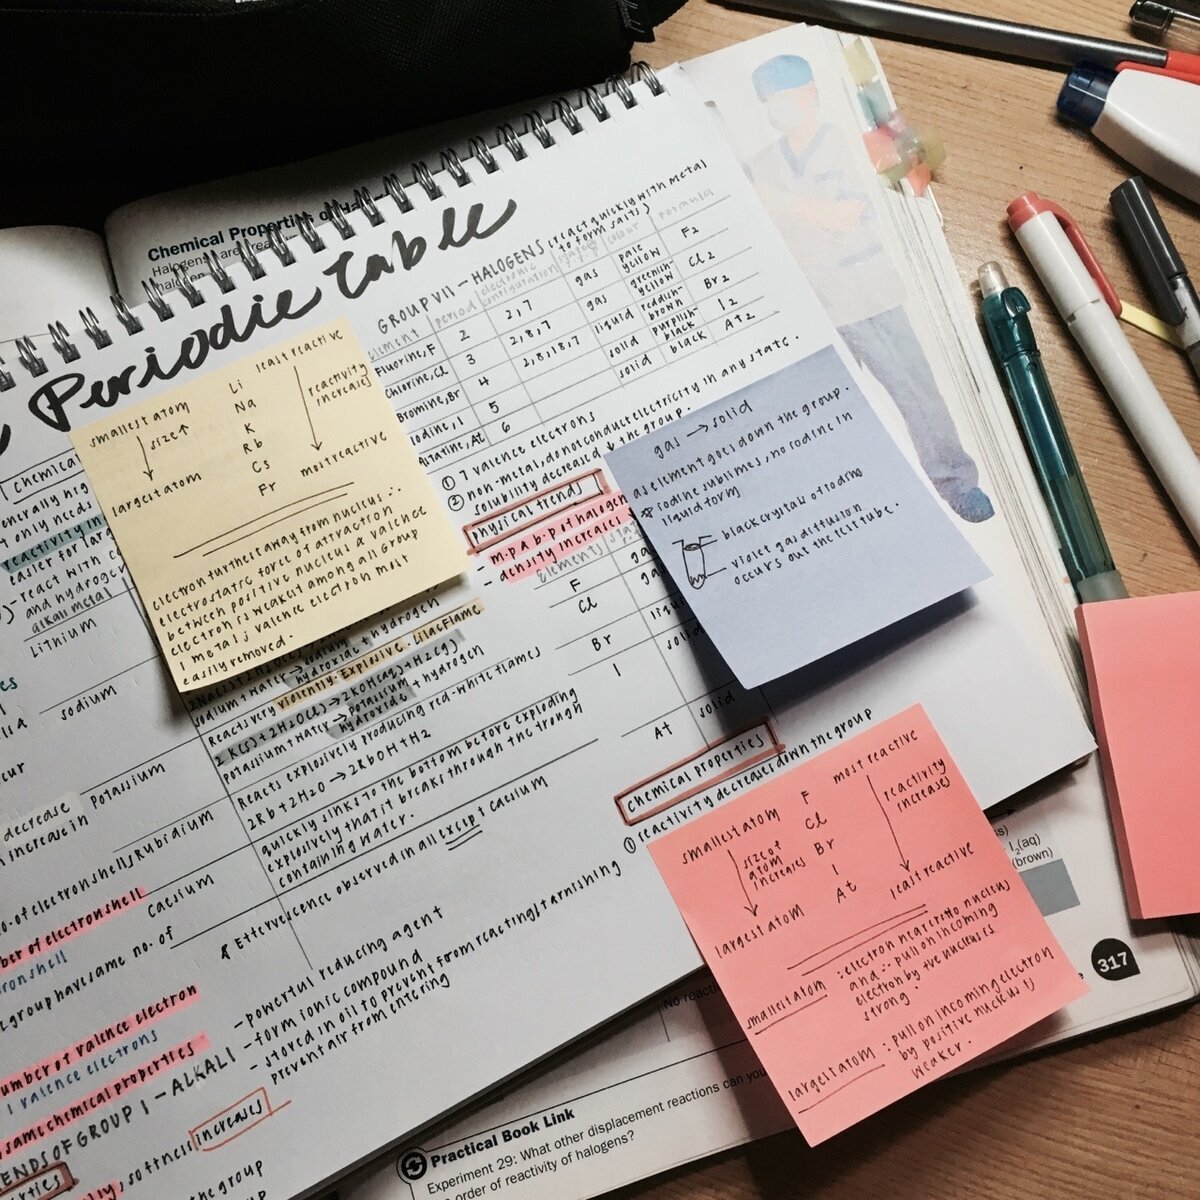 Chemical Properties of
Halogens are rea
halogen
Periodic Table
GROUP VII - HALOGENS (react quickly with metal
to form salts)
element period electronic configuration colour Formula
Fluorine, F 2 2,7 gas pale yellow F2
Chlorine, Cl 3 2,8,7 gas greenish-yellow Cl2
Bromine, Br 4 2,8,18,7 liquid reddish-brown Br2
Iodine, I 5 solid purplish-black I2
Astatine, At 6 solid black At2
① 7 valence electrons
② non-metal, do not conduct electricity in any state.
solubility decreased ↓ the group.
physical trends
- m.p & b.p of halogen
- density increases
Elements
F
Cl
Br
I
At solid
chemical properties
① reactivity decreases down the group
smallest atom
size↑
largest atom
Li
Na
K
Rb
Cs
Fr
least reactive
reactivity increases
most reactive
electron furthest away from nucleus ∴
electrostatic force of attraction
between positive nucleus & valence
electron is weakest among all group
I metal ; valence electron most
easily removed.
gas → solid
as element goes down the group.
* iodine sublimes, no iodine in
liquid form
black crystals of iodine
violet gas diffusion
occurs out the test tube.
smallest atom
size of
atom
increases
largest atom
F
Cl
Br
I
At
most reactive
reactivity
increases
least reactive
smallest atom : electron nearer to nucleus
and ∴ pull on incoming
electron by +ve nucleus is
strong.
largest atom : pull on incoming electron
by positive nucleus is
weaker.
chemica
enerally hig
t only needs
reactivity in
easier for larg
react with co
and hydroge
alkali metal
Lithium
sodium
Potassium
Rubidium
Caesium
sodium + water → sodium hydroxide + hydrogen
Reacts very violently. Explosive. Lilac Flame
2K(s) + 2H2O(l) → 2KOH(aq) + H2(g)
potassium + water → potassium hydroxide + hydrogen
Reacts explosively producing red-white flames
2Rb + 2H2O → 2RbOH + H2
quickly sinks to the bottom before exploding
explosively that it breaks through the trough
containing water.
* Effervescence observed in all except caesium
- powerful reducing agent
- form ionic compound
- stored in oil to prevent from reacting/tarnishing
prevent air from entering
decrease
increase in
no. of electron shells
ber of electron shell
tron shell
group have same no. of
umber of valence electron
1 valence electrons
same chemical properties
ENDS OF GROUP I - ALKALI
softness increases
the group
I2(aq)
(brown)
317
No reacti
Practical Book Link
Experiment 29: What other displacement reactions can you
order of reactivity of halogens?